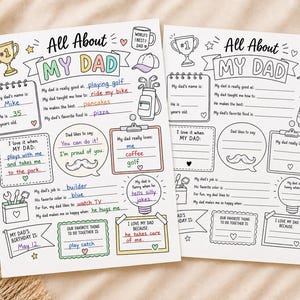 All About
MY DAD
#1
WORLD'S
BEST
DAD
My dad's name is:
Mike
He is 35
years old.
My dad is really good at playing golf
My dad taught me how to ride my bike
He makes the best pancakes
My dad's favorite food is pizza
I love it when
MY DAD:
plays with me
and takes me
to the park.
Dad likes to say:
You can do it!
I'm proud of you.
My dad really loves:
me
coffee
golfs
My dad's job is builder
His favorite color is blue
For fun, my dad likes to watch TV
My dad makes me so happy when he hugs me
My dad is
funny when he
tells silly
jokes
MY DAD'S
BIRTHDAY IS:
May 12
OUR FAVORITE THING
TO DO TOGETHER IS
play catch
I LOVE MY DAD
BECAUSE
he takes care
of me.
All About
MY DAD
#1
My dad's name is:
He is
years old.
My dad is really good at
My dad taught me how to
He makes the best
My dad's favorite food is
I love it when
MY DAD:
Dad likes to say:
My dad's job is
His favorite color is
For fun, my dad likes to
My dad makes me so happy when
MY DAD'S
BIRTHDAY IS:
OUR FAVORITE THING
TO DO TOGETHER IS
I LOVE MY DAD
BECAUSE